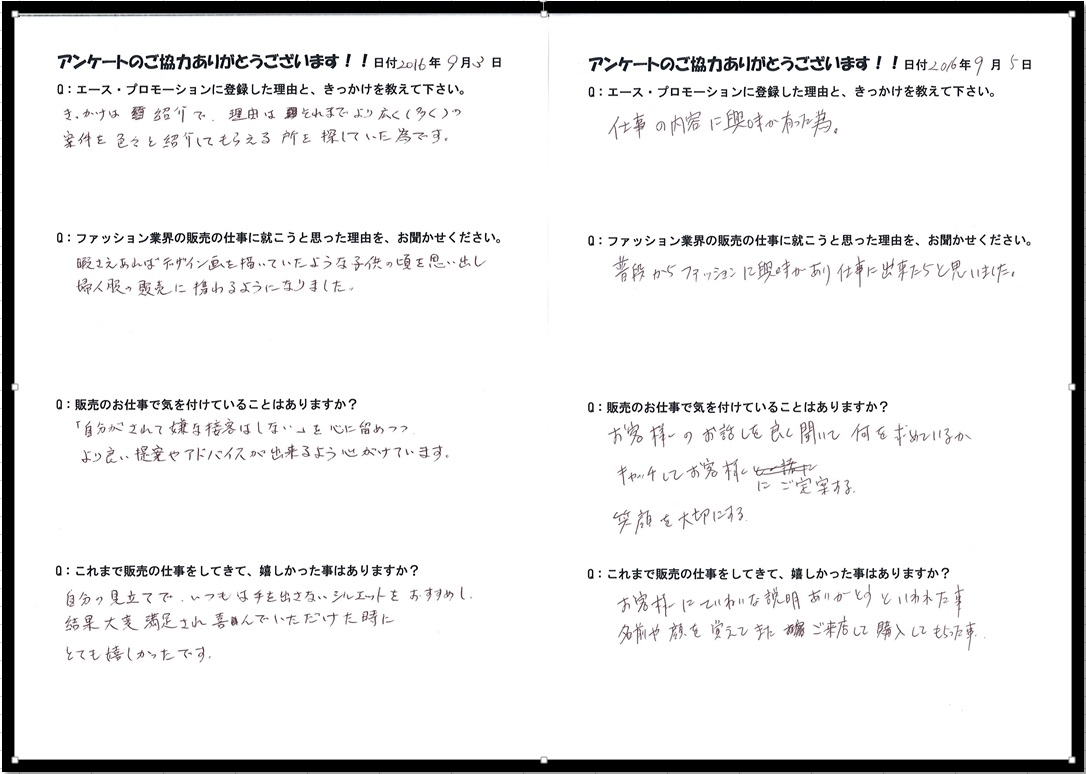 アンケートのご協力ありがとうございます！！日付2016年 9月3日
Q：エース・プロモーションに登録した理由と、きっかけを教えて下さい。
きっかけは 紹介で、理由は それまでより広く(多く)の
案件を色々と紹介してもらえる所を探していた為です。
Q：ファッション業界の販売の仕事に就こうと思った理由を、お聞かせください。
暇さえあればデザイン画を描いていたような子供の頃を思い出し
婦人服の販売に携わるようになりました。
Q：販売のお仕事で気を付けていることはありますか？
「自分がされて嫌な接客はしない」を心に留めつつ
より良い提案やアドバイスが出来るよう心がけています。
Q：これまで販売の仕事をしてきて、嬉しかった事はありますか？
自分の見立てで、いつもは手を出さないシルエットをおすすめし、
結果大変満足され喜んでいただけた時に
とても嬉しかったです。
アンケートのご協力ありがとうございます！！日付2016年9月5日
Q：エース・プロモーションに登録した理由と、きっかけを教えて下さい。
仕事の内容に興味が有った為。
Q：ファッション業界の販売の仕事に就こうと思った理由を、お聞かせください。
普段からファッションに興味があり仕事に出来たらと思いました。
Q：販売のお仕事で気を付けていることはありますか？
お客様のお話しを良く聞いて何を求めているか
キャッチしてお客様
にご定案する。
笑顔を大切にする
Q：これまで販売の仕事をしてきて、嬉しかった事はありますか？
お客様にていねいな説明ありがとうといわれた事
名前や顔を覚えてきた ご来店して購入してもらった事。